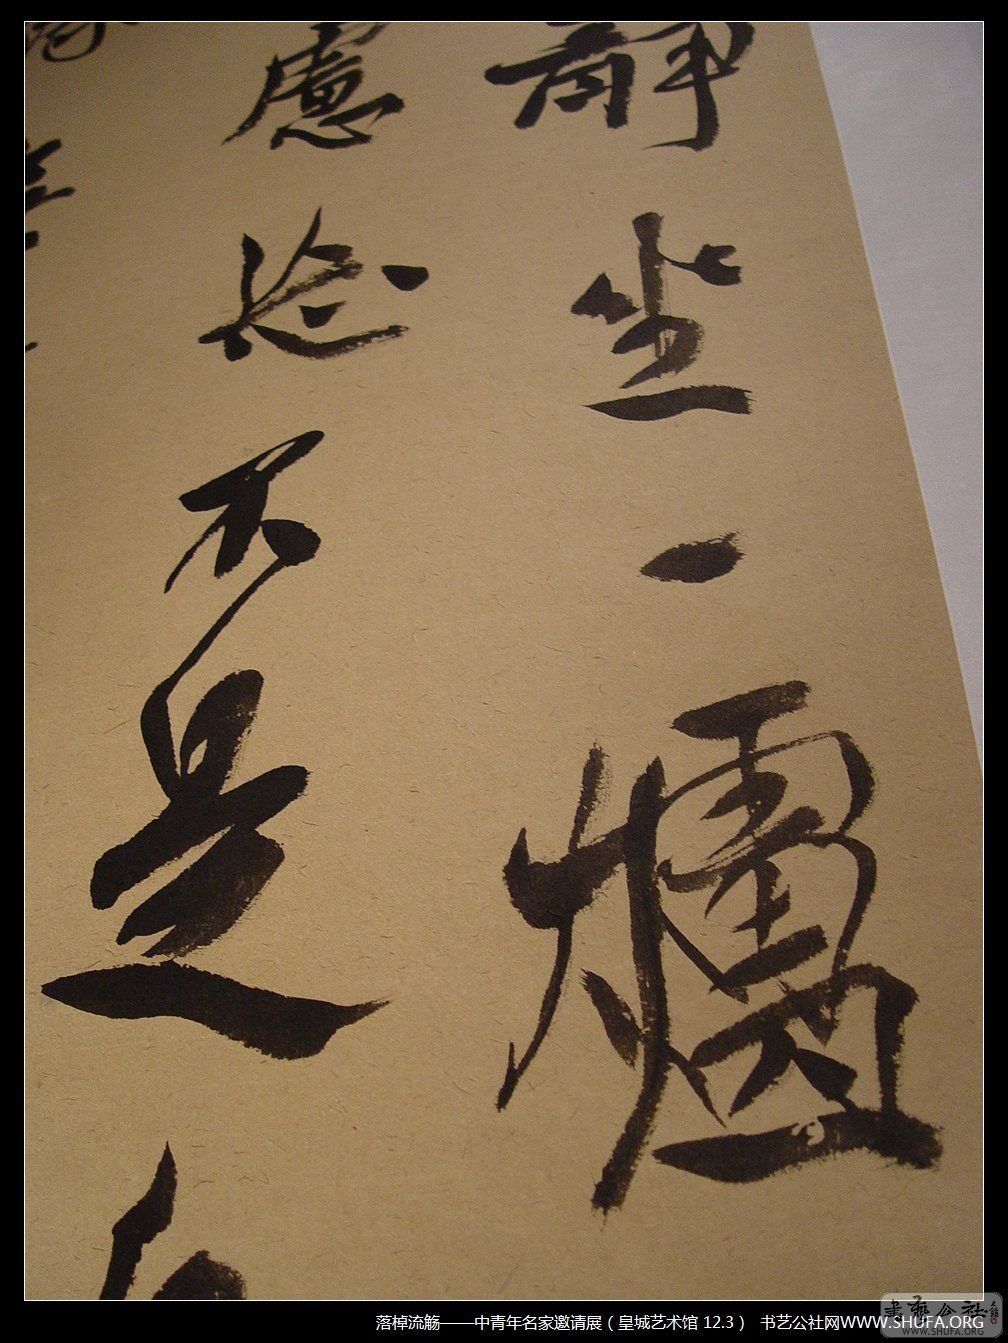 靜坐一爐
慮忘不是
落棹流觞——中青年名家邀请展（皇城艺术馆 12.3） 书艺公社网WWW.SHUFA.ORG
書藝公社
WWW.SHUFA.ORG